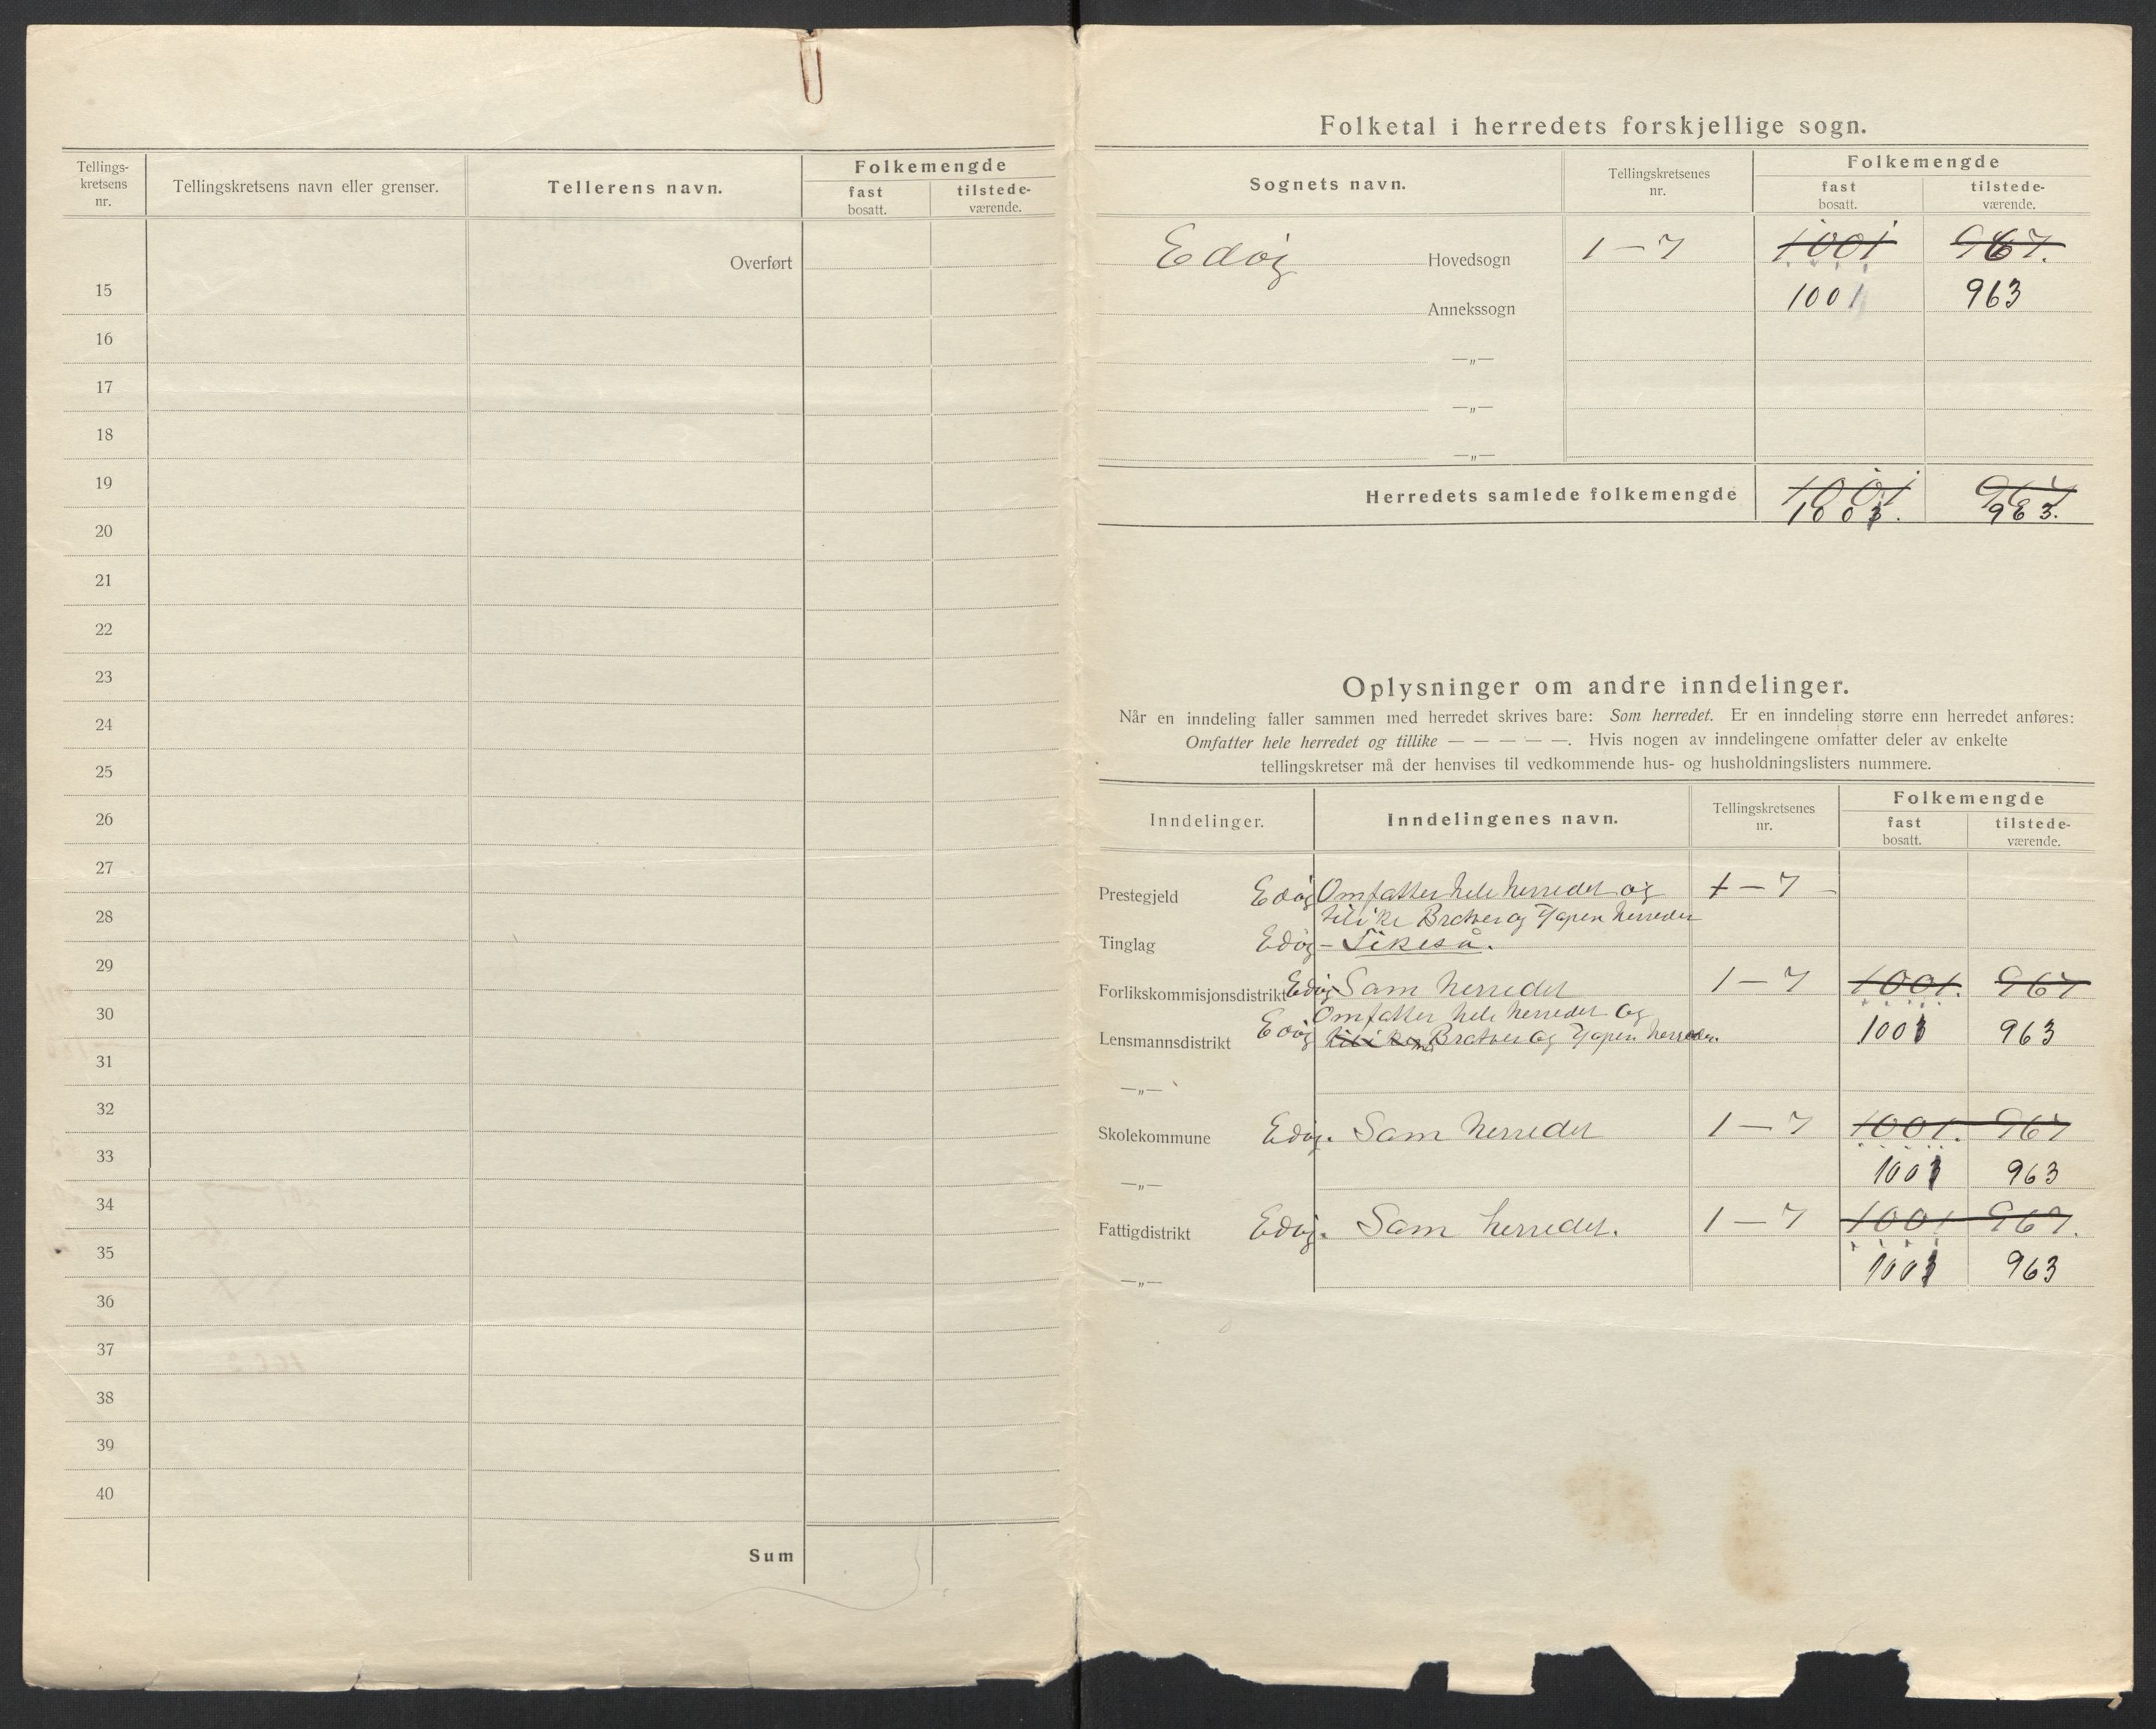 Tellings-
kretsens
nr.
Tellingskretsens navn eller grenser.
Tellerens navn.
Folkemengde
fast
bosatt.
tilstede-
værende.
Overført
15
16
17
18
19
20
21
22
23
24
25
26
27
28
29
30
31
32
33
34
35
36
37
38
39
40
Sum
Folketal i herredets forskjellige sogn.
Sognets navn.
Tellingskretsenes
nr.
Folkemengde
fast
bosatt.
tilstede-
værende.
Edøy Hovedsogn 1 – 7 1001 967.
Annekssogn 1001 963
—„—
—„—
—„—
Herredets samlede folkemengde 1001 967
963.
Oplysninger om andre inndelinger.
Når en inndeling faller sammen med herredet skrives bare: Som herredet. Er en inndeling større enn herredet anføres:
Omfatter hele herredet og tillike — — — — —. Hvis nogen av inndelingene omfatter deler av enkelte
tellingskretser må der henvises til vedkommende hus- og husholdningslisters nummere.
Inndelinger.
Inndelingenes navn.
Tellingskretsenes
nr.
Folkemengde
fast
bosatt.
tilstede-
værende.
Prestegjeld Edøy Omfatter hele herredet og 1 – 7 –
tilike Bratvær og Hopen herreder
Tinglag Edøy – Likeså.
Forlikskommisjonsdistrikt Edøy Som herredet 1 – 7 1001. 967
Omfatter hele herredet og
Lensmannsdistrikt Edøy tilike Bratvær og Hopen herreder. 1001 963
—„—
Skolekommune Edøy. Som herredet 1 – 7 1001. 967
—„— 1001 963
Fattigdistrikt Edøy. Som herredet. 1 – 7 1001 967.
—„— 1001 963